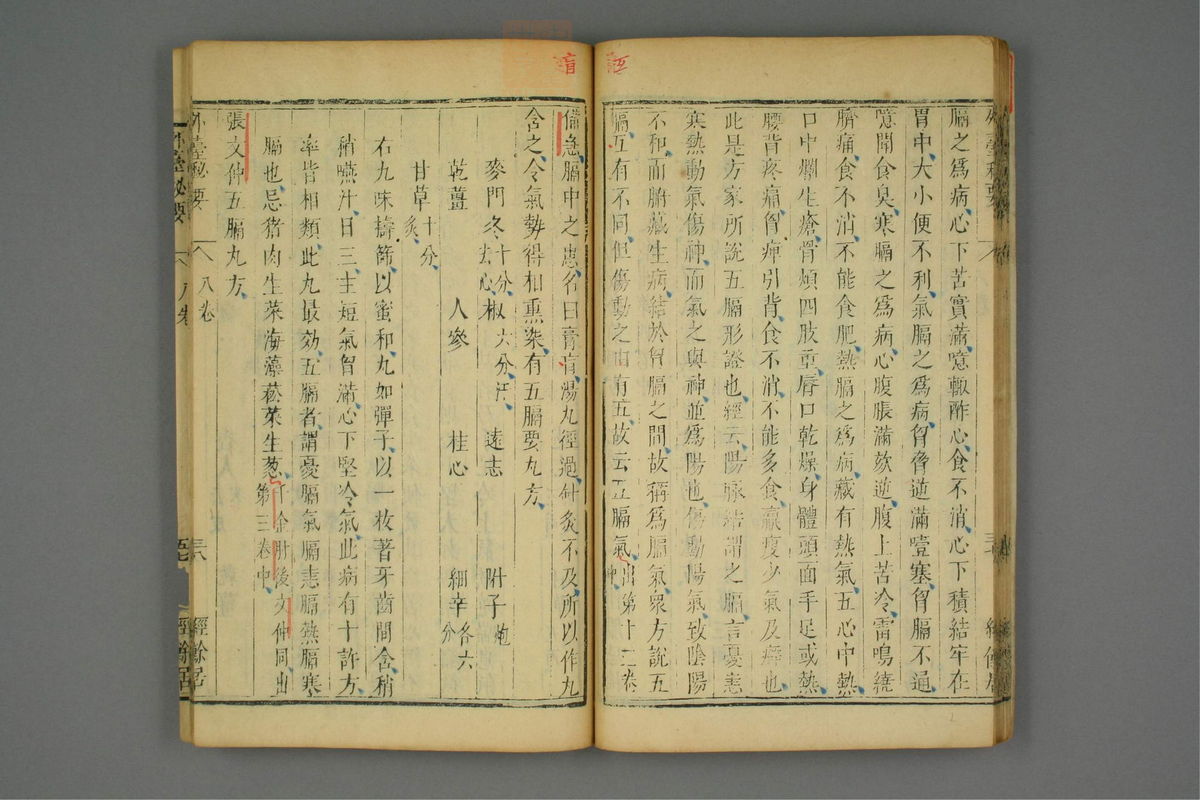 膈之爲病心下苦實滿噫輙酢心食不消心下積結牢在
胃中大小便不利氣膈之爲病胷脅逆滿噎塞胷膈不通
噫聞食臭寒膈之爲病心腹脹滿欬逆腹上苦冷雷鳴繞
臍痛食不消不能食肥熱膈之爲病藏有熱氣五心中熱
口中爛生瘡骨煩四肢重唇口乾燥身體頭面手足或熱
腰背疼痛胷痺引背食不消不能多食羸瘦少氣及癖也
此是方家所說五膈形證也經云陽脉結謂之膈言憂恚
寒熱動氣傷神而氣之與神並爲陽也傷動陽氣致陰陽
不和而腑藏生病結於胷膈之間故稱爲膈氣衆方說五
膈互有不同但傷動之由有五故云五膈氣出第十三卷
中
備急膈中之患名曰膏肓湯丸徑過針灸不及所以作丸
含之令氣勢得相熏染有五膈要丸方
麥門冬十分去心 椒六分汗 遠志 附子炮
乾薑 人參 桂心 細辛各六分
甘草十分炙
右九味擣篩以蜜和丸如彈子以一枚著牙齒間含稍
稍嚥汁日三主短氣胷滿心下堅冷氣此病有十許方
率皆相類此丸最效五膈者謂憂膈氣膈恚膈熱膈寒
膈也忌猪肉生菜海藻菘菜生葱千金肘後文仲同出
第三卷中
張文仲五膈丸方
外臺秘要 八卷 經餘居